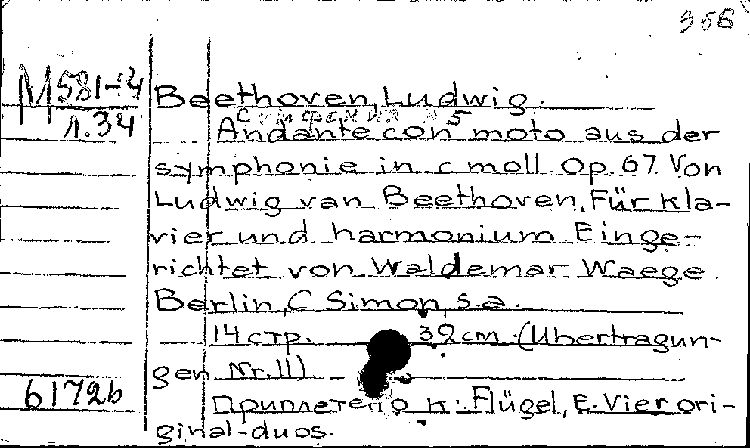 356
M 581-4
л.34
Beethoven, Ludwig.
Симфония № 5
Andante con moto aus der
symphonie in c moll Op. 67. Von
Ludwig van Beethoven, Für kla-
vier und harmonium Einge-
richtet von Waldemar Waege.
Berlin, C Simon, s.a.
14 стр. 32 cm. (Ubertragun-
gen Nr. 11)
6172b
Приплетено к: Flügel, E. Vier ori-
ginal-duos.